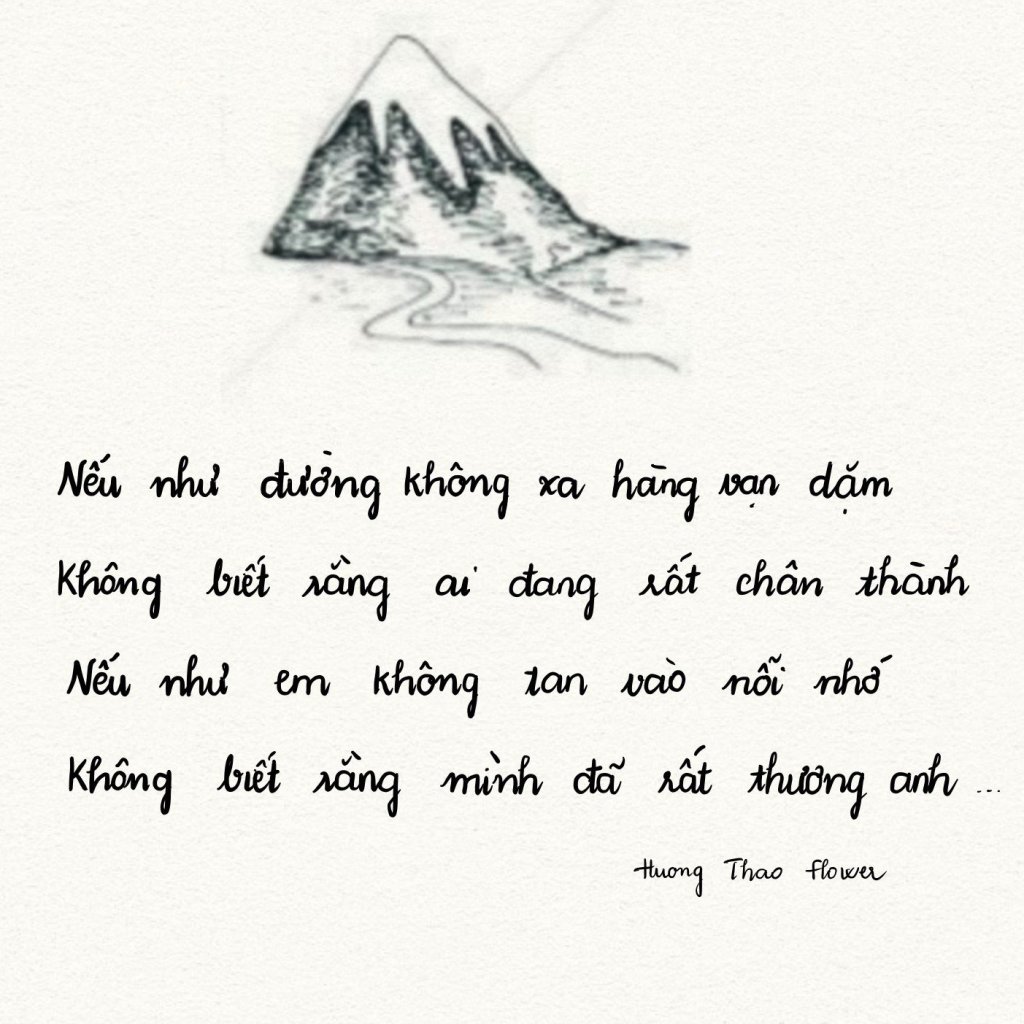 Nếu như đường không xa hàng vạn dặm
Không biết rằng ai đang rất chân thành
Nếu như em không tan vào nỗi nhớ
Không biết rằng mình đã rất thương anh ...
Huong Thao flower